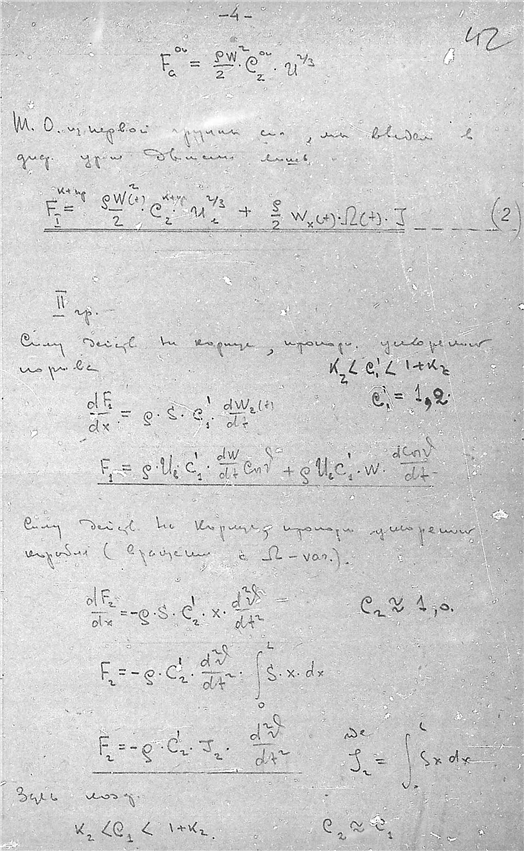 -4-
42
F_a^{ou} = ρW²/2 · C_2^{ou} · U^{2/3}
Т. О. из первой группы сил, мы введем в
диф. ур-я движения лишь
F_I^{к+пр} = ρW²(t)/2 · C_2^{к+пр} · U_в^{2/3} + ρ/2 W_x(t)·Ω(t)·J (2)
II гр.
Силу действ. на корпус, пропорц. ускорению
потока
K_2 < C_1' < 1+K_2
C_1' = 1,2.
dF_1/dx = ρ · S · C_1' · dW_2(t)/dt
F_1 = ρ·U_в C_1' · dW/dt Cosϑ + ρ U_в C_1' · W · dCosϑ/dt
Силу действ. на корпус, пропорц. ускорению
корабля (вращение с Ω - var.).
dF_2/dx = -ρ · S · C_2' · x · d²ϑ/dt²
C_2 ≈ 1,0.
F_2 = -ρ · C_2' · d²ϑ/dt² · ∫_0^L S · x · dx
F_2 = -ρ · C_2' · J_2 · d²ϑ/dt²
где
J_2 = ∫_0^L Sx dx
Здесь
K_2 < C_1 < 1+K_2.
C_2 ≈ C_1